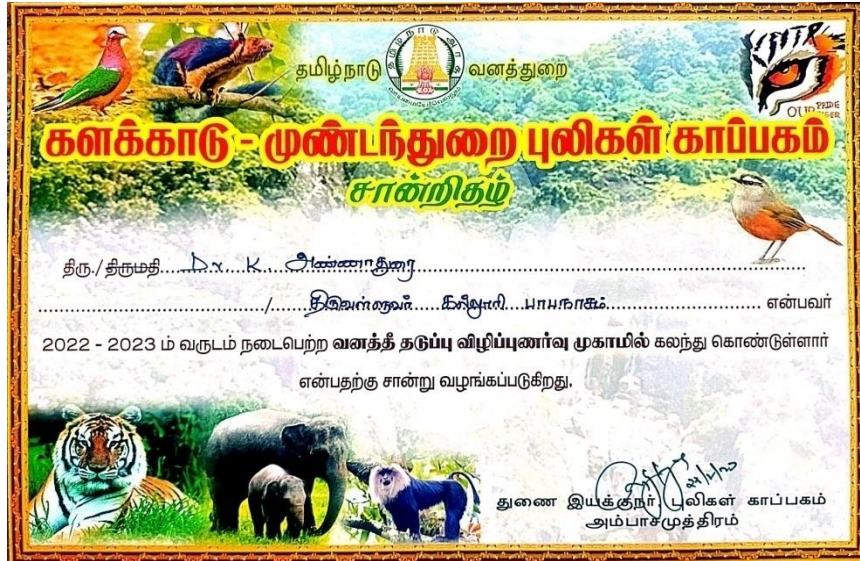 தமிழ்நாடு வனத்துறை
OUR PRIDE
களக்காடு - முண்டந்துறை புலிகள் காப்பகம்
சான்றிதழ்
திரு./திருமதி.....Dr. K. அண்ணாதுரை.....
...../ திருவள்ளுவர் கல்லூரி பாபநாசம்..... என்பவர்
2022 - 2023 ம் வருடம் நடைபெற்ற வனத்தீ தடுப்பு விழிப்புணர்வு முகாமில் கலந்து கொண்டுள்ளார்
என்பதற்கு சான்று வழங்கப்படுகிறது.
துணை இயக்குநர் புலிகள் காப்பகம்
அம்பாசமுத்திரம்